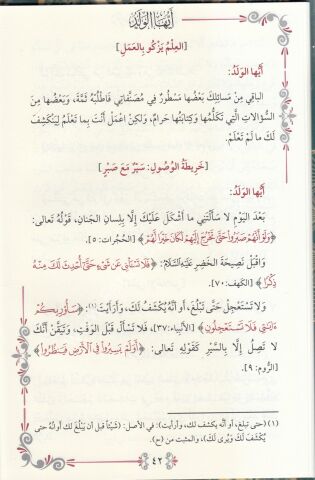 أيها الولد
[العِلْمُ يَزْكُو بِالعَمَلِ]
أَيُّها الوَلَدُ:
الباقِي مِنْ مَسائِلِكَ بَعْضُها مَسْطُورٌ فِي مُصَنَّفاتِي فَاطْلُبْهُ ثَمَّةَ، وَبَعْضُها مِنَ
السُّؤالاتِ الَّتِي تَكَلُّمُها وَكِتابَتُها حَرامٌ، وَلكِنْ اعْمَلْ أَنْتَ بِما تَعْلَمُ لِيَنْكَشِفَ
لَكَ ما لَمْ تَعْلَمْ.
[خَرِيطَةُ الوُصُولِ: سَيْرٌ مَعَ صَبْرٍ]
أَيُّها الوَلَدُ:
بَعْدَ اليَوْمِ لا سَأَلْتَنِي ما أَشْكَلَ عَلَيْكَ إِلَّا بِلِسانِ الجَنانِ، قَوْلُهُ تَعالى:
﴿وَلَوْ أَنَّهُمْ صَبَرُوا حَتَّى تَخْرُجَ إِلَيْهِمْ لَكَانَ خَيْرًا لَهُمْ﴾ [الحُجُرات: ٥].
وَاقْبَلْ نَصِيحَةَ الخَضِرِ عَلَيْهِ السَّلَامُ: ﴿فَلَا تَسْأَلْنِي عَن شَيْءٍ حَتَّى أُحْدِثَ لَكَ مِنْهُ
ذِكْرًا﴾ [الكهف: ٧٠].
وَلا تَسْتَعْجِلْ حَتَّى تَبْلُغَ، أَو أَنَّهُ يُكْشَفُ لَكَ، وَأَرَأَيْتَ(١): ﴿سَأُوْرِيكُمْ
ءَايَاتِي فَلَا تَسْتَعْجِلُونِ﴾ [الأنبياء: ٣٧]، فَلا تَسْأَلْ قَبْلَ الوَقْتِ، وَتَيَقَّنْ أَنَّكَ
لا تَصِلُ إِلَّا بِالسَّيْرِ كَقَوْلِهِ تَعالى: ﴿أَوَلَمْ يَسِيرُوا فِي الْأَرْضِ فَيَنظُرُوا﴾
[الرُّوم: ٩].
(١) (حتى تبلغ، أو أنَّه يكشف لك، وأرأيت): في الأصل: (شَيْئاً قبل أن يَبْلُغَ لك أوانُه حتى
يُكْشَفَ لكَ وَيُرى لَكَ)، والمثبت من (ح).
٤٢